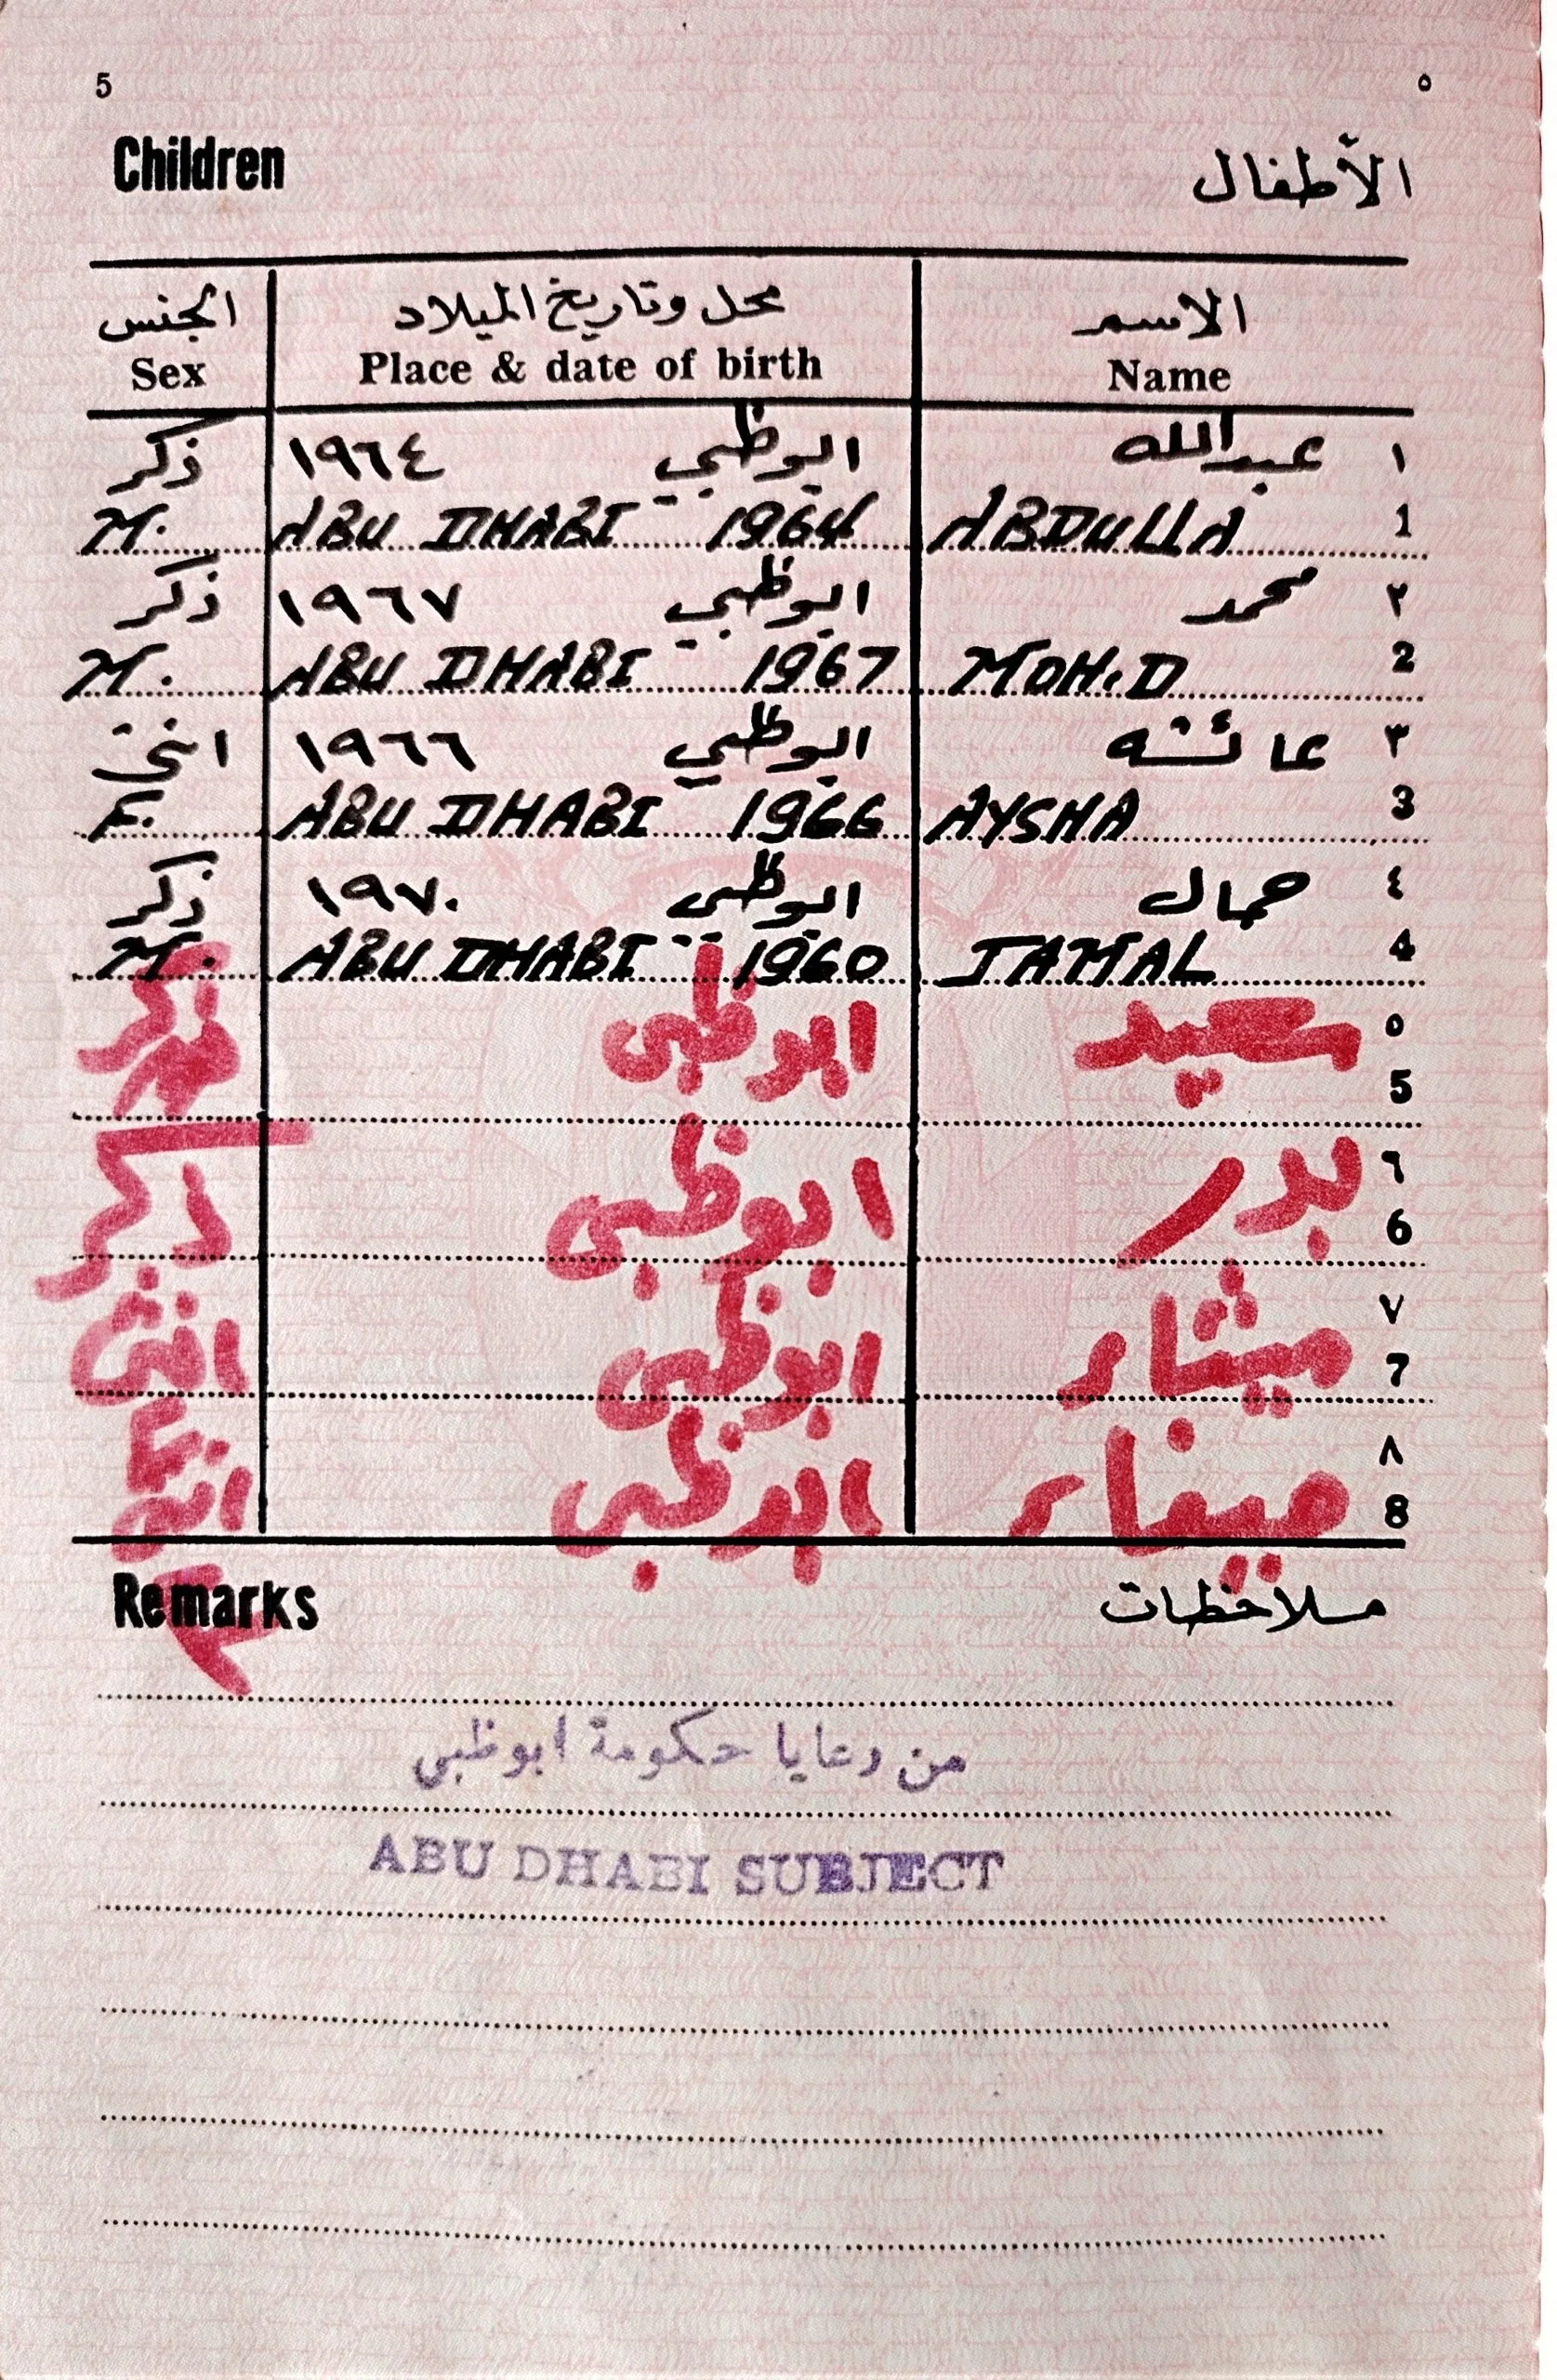 5 ٥
Children الأطفال
الجنس محل وتاريخ الميلاد الاسم
Sex Place & date of birth Name
ذكر ١٩٦٤ ابوظبي عبدالله ١
M. ABU DHABI 1964 ABDULLA 1
ذكر ١٩٦٧ ابوظبي محمد ٢
M. ABU DHABI 1967 MOH.D 2
انثى ١٩٦٦ ابوظبي عائشه ٣
F. ABU DHABI 1966 AYSHA 3
ذكر ١٩٧٠ ابوظبي جمال ٤
M. ABU DHABI 1960 JAMAL 4
ابوظبي سعيد ٥
5
ابوظبي بدر ٦
6
انثى ابوظبي ميثاء ٧
7
ابوظبي ميفاء ٨
8
Remarks ملاحظات
من رعايا حكومة ابوظبي
ABU DHABI SUBJECT